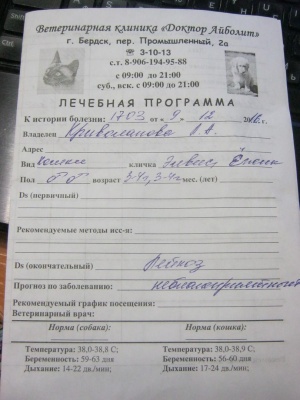 Ветеринарная клиника «Доктор Айболит»
г. Бердск, пер. Промышленный, 2а
☎ 3-10-13
с.т. 8-906-194-95-88
с 09-00 до 21:00
суб., вск. с 09-00 до 21-00
ЛЕЧЕБНАЯ ПРОГРАММА
К истории болезни: 1703 от « 9 » 12 2016.г.
Владелец
Адрес
Вид кошки кличка Элвис,
Пол ♂♂ возраст мес. (лет)
Ds (первичный)
Рекомендуемые методы исс-я:
Ds (окончательный) Лейкоз
Прогноз по заболеванию: неблагоприятный
Рекомендуемый график посещения:
Ветеринарный врач:
Норма (собака): Норма (кошка):
Температура: 38,0-38,8 С; Температура: 38,0-38,9 С;
Беременность: 59-63 дня Беременность: 56-60 дня
Дыхание: 14-22 дв./мин; Дыхание: 17-24 дв./мин;